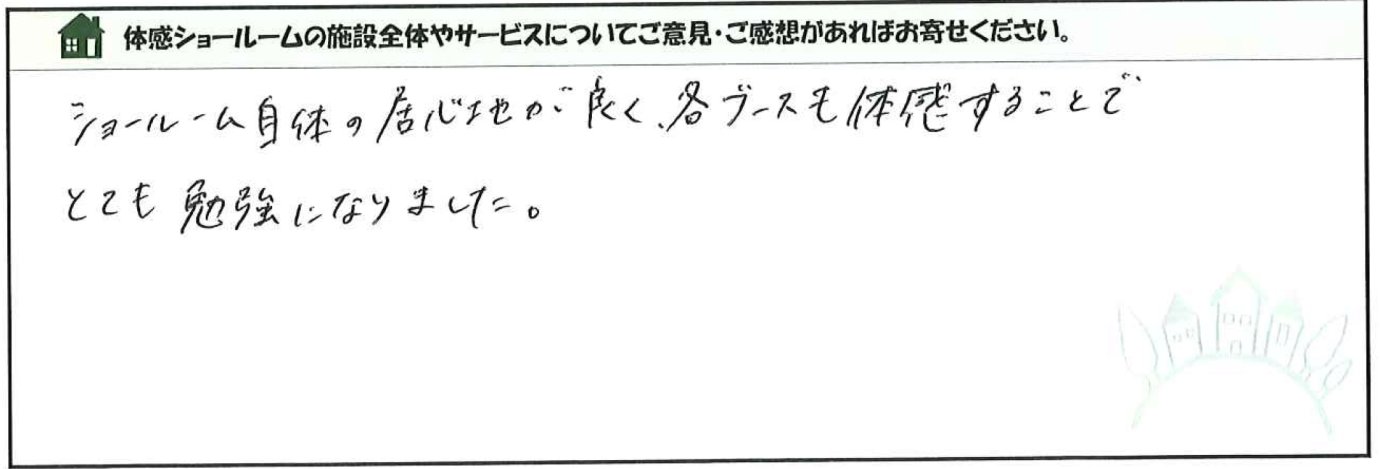 体感ショールームの施設全体やサービスについてご意見・ご感想があればお寄せください。
ショールーム自体の居心地が良く、各ブースも体感することで
とても勉強になりました。